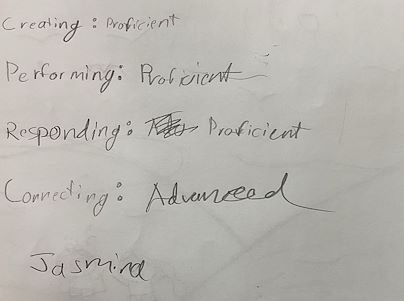 Creating: Proficient
Performing: Proficient
Responding: Proficient
Connecting: Advanced
Jasmine